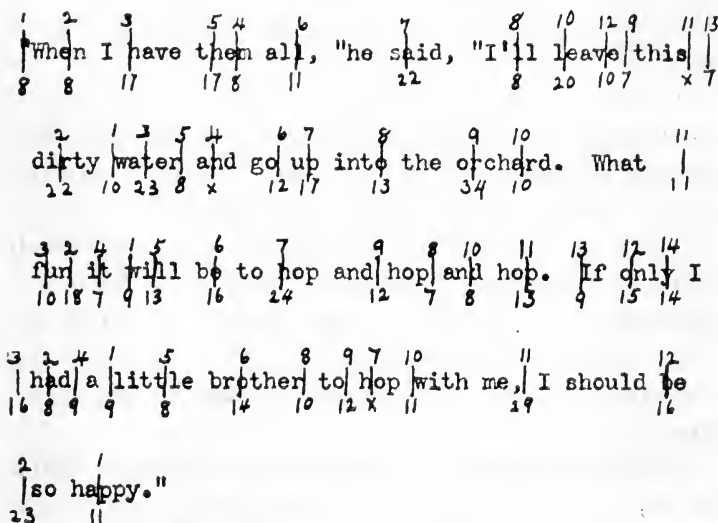 1 2 3 5 4 6 7 8 10 12 9 11 13
"When I have them all, "he said, "I'll leave this
8 8 17 17 8 11 22 8 20 10 7 x 7
2 1 3 5 4 6 7 8 9 10 11
dirty water and go up into the orchard. What
22 10 23 8 x 12 17 13 34 10 11
3 2 4 1 5 6 7 9 8 10 11 13 12 14
fun it will be to hop and hop and hop. If only I
10 18 7 9 13 16 24 12 7 8 13 9 15 14
3 2 4 1 5 6 8 9 7 10 11 12
had a little brother to hop with me, I should be
16 8 9 9 8 14 10 12 x 11 29 16
2 1
so happy."
23 11